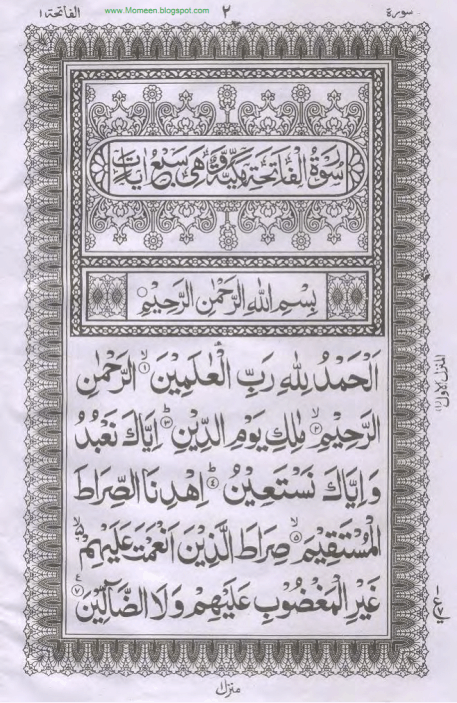 سورة ٢ www.Momeen.blogspot.com الفاتحة ١
سُوْرَةُ الْفَاتِحَةِ مَكِّيَّةٌ وَّهِىَ سَبْعُ اٰيَاتٍ
بِسْمِ اللّٰهِ الرَّحْمٰنِ الرَّحِيْمِ
اَلْحَمْدُ لِلّٰهِ رَبِّ الْعٰلَمِيْنَ ۙ﴿١﴾ الرَّحْمٰنِ
الرَّحِيْمِ ۙ﴿٢﴾ مٰلِكِ يَوْمِ الدِّيْنِ ؕ﴿٣﴾ اِيَّاكَ نَعْبُدُ
وَاِيَّاكَ نَسْتَعِيْنُ ؕ﴿٤﴾ اِهْدِنَا الصِّرَاطَ
الْمُسْتَقِيْمَ ۙ﴿٥﴾ صِرَاطَ الَّذِيْنَ اَنْعَمْتَ عَلَيْهِمْ ۙ﴿٦﴾
غَيْرِ الْمَغْضُوْبِ عَلَيْهِمْ وَلَا الضَّآلِّيْنَ ﴿٧﴾
المنزل الاول (١)
منزل ١